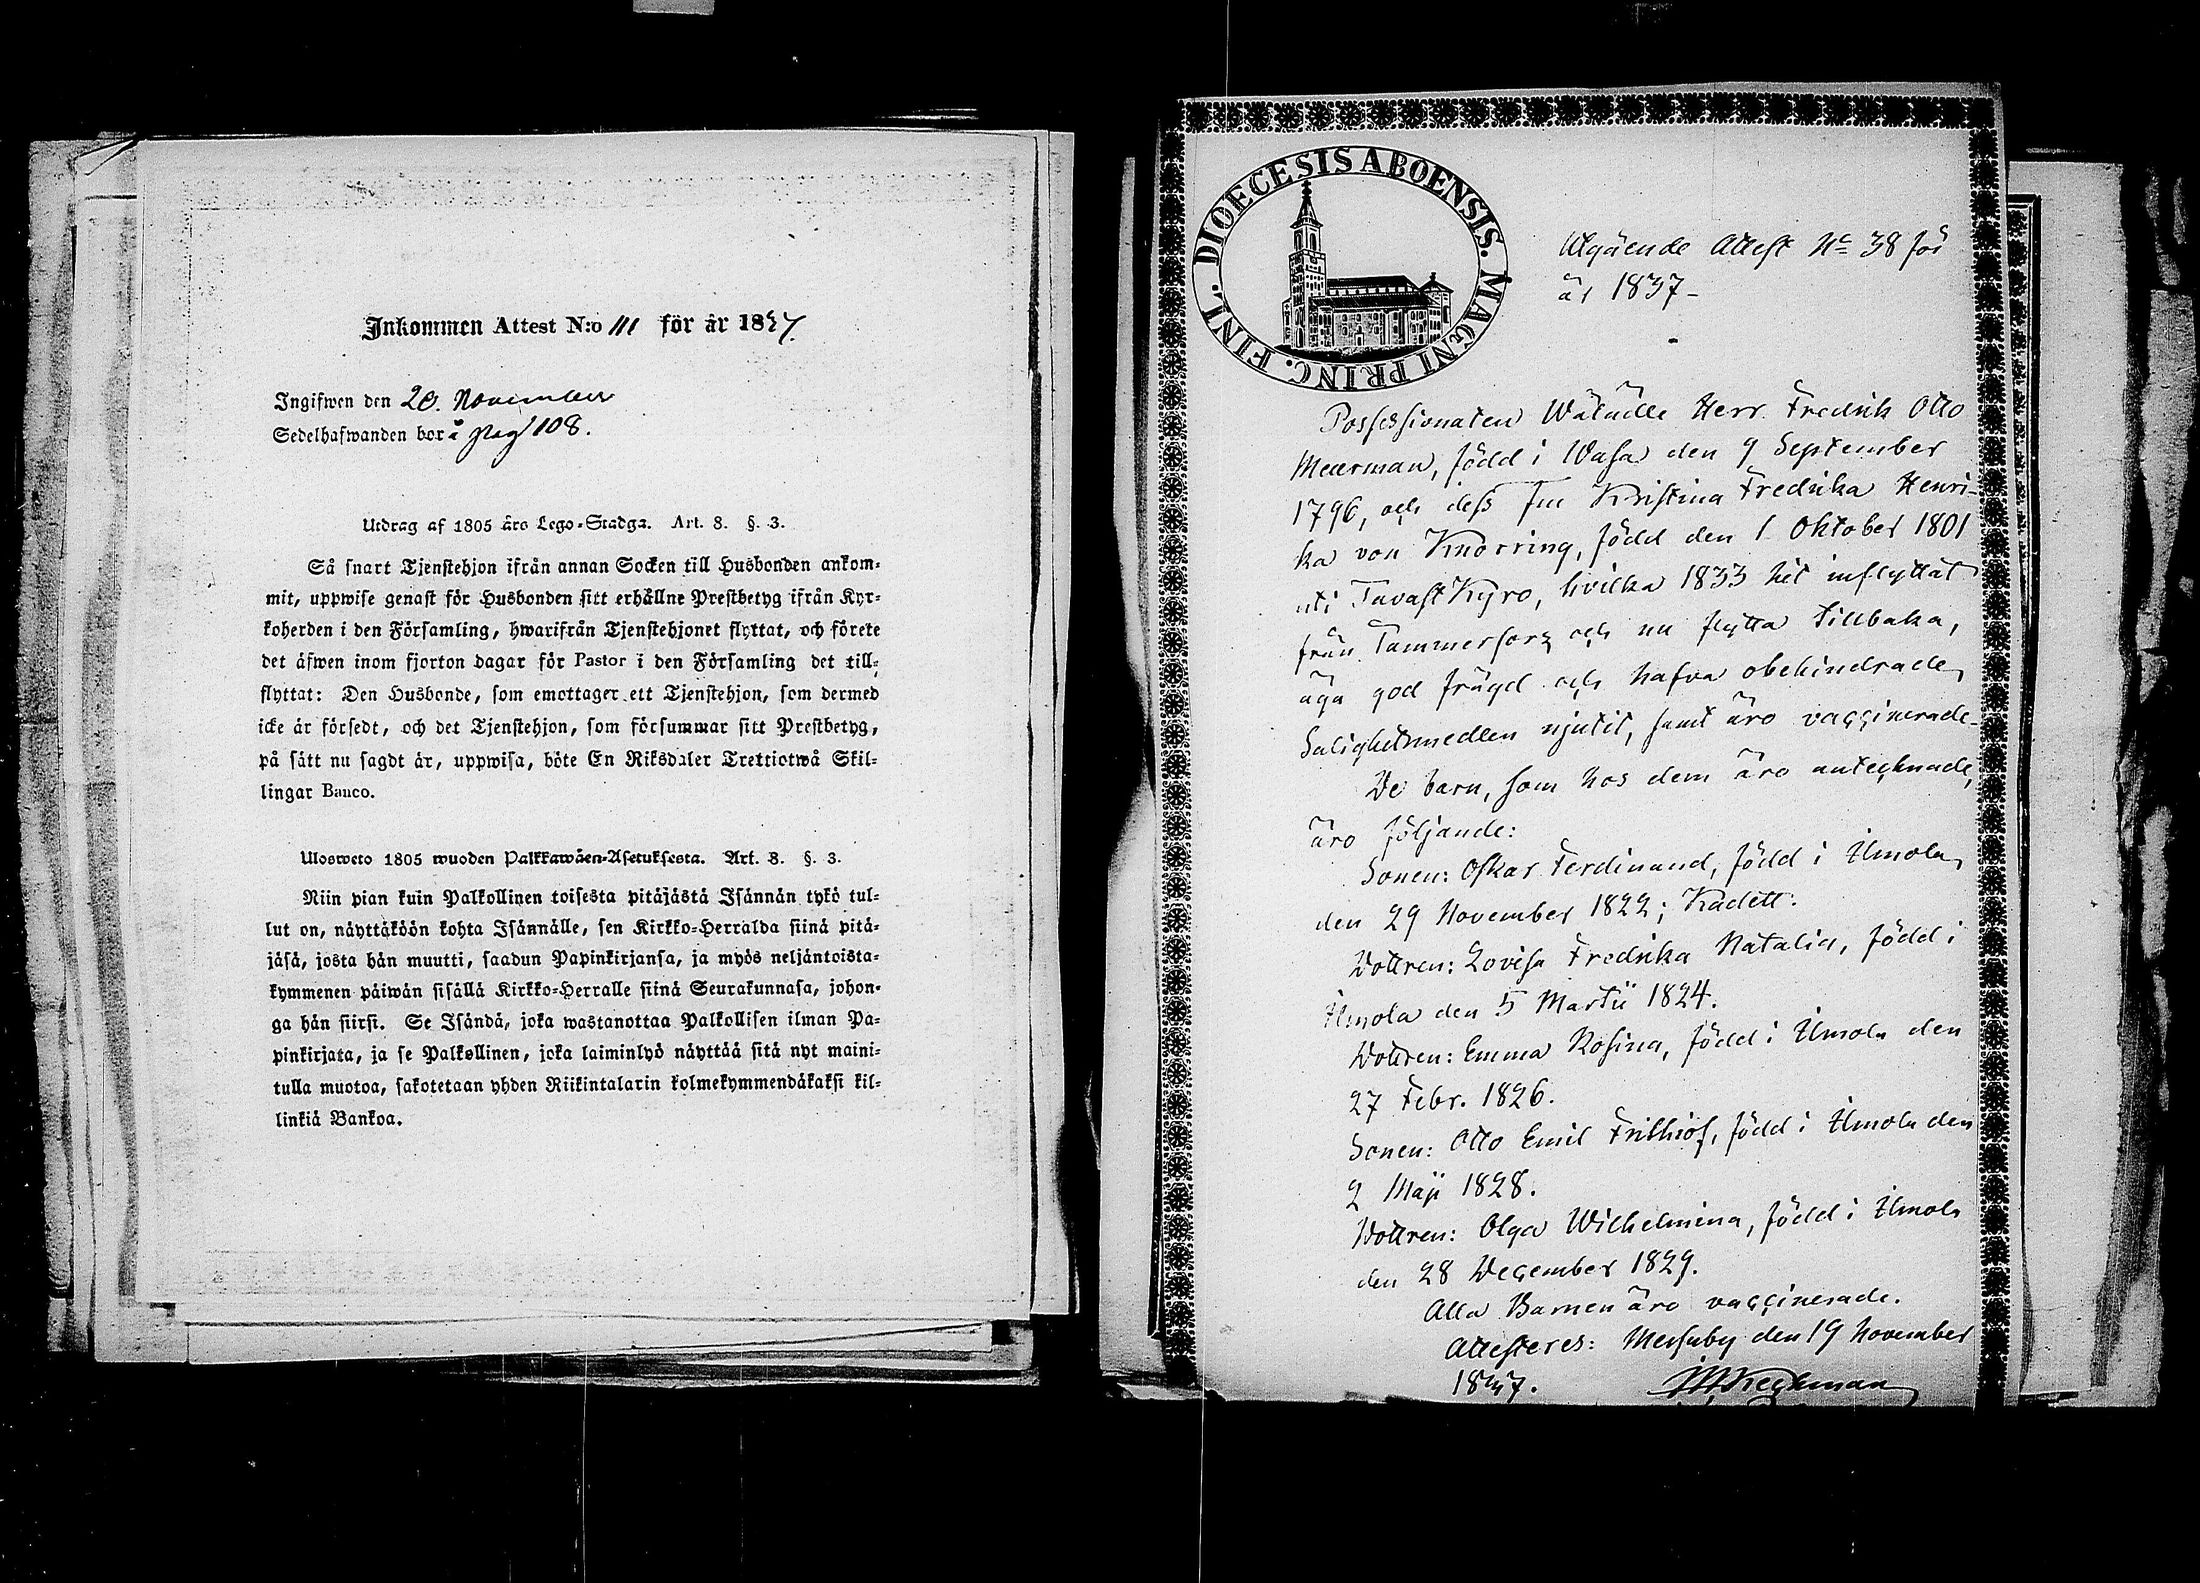 Inkommen Attest N:o 111 för år 1837.
Ingifwen den 20. November
Sedelhafwanden bor å pag 108.
Utdrag af 1805 års Lego-Stadga. Art. 8. §. 3.
Så snart Tjenstehjon ifrån annan Socken till Husbonden ankom-
mit, uppwise genast för Husbonden sitt erhållne Prestbetyg ifrån Kyr-
koherden i den Församling, hwarifrån Tjenstehjonet flyttat, och förete
det äfwen inom fjorton dagar för Pastor i den Församling det till-
flyttat: Den Husbonde, som emottager ett Tjenstehjon, som dermed
icke är försedt, och det Tjenstehjon, som försummar sitt Prestbetyg,
på sätt nu sagdt är, uppwisa, böte En Riksdaler Trettiotwå Skil-
lingar Banco.
Ulosweto 1805 wuoden Palkkawäen-Asetuksesta. Art. 8. §. 3.
Niin pian kuin Palkollinen toisesta pitäjästä Isännän tykö tul-
lut on, näyttäköön kohta Isännälle, sen Kirkko-Herralda siinä pitä-
jäsä, josta hän muutti, saadun Papinkirjansa, ja myös neljäntoista-
kymmenen päiwän sisällä Kirkko-Herralle siinä Seurakunnasa, johon-
ga hän siirsi. Se Isändä, joka wastanottaa Palkollisen ilman Pa-
pinkirjata, ja se Palkollinen, joka laiminlyö näyttää sitä nyt maini-
tulla muotoa, sakotetaan yhden Riikintalarin kolmekymmendäkaksi kil-
linkiä Bankoa.
DIOECESIS ABOENSIS. MAGNI PRINC. FINL.
Utgående Attest No 38 för
år 1837-
Possessionaten Wälädle Herr Fredrik Otto
Meurman, född i Wasa den 9 September
1796, och dess Fru Kristina Fredrika Henri-
ka von Knorring, född den 1 Oktober 1801
uti Tavast Kyro, hvilka 1833 hit inflyttat
från Tammerfors och nu flytta tillbaka,
äga god frägd och hafva obehindrade
Salighetsmedlen njutit, samt äro vaccinerade.
De barn, som hos dem äro antecknade,
äro följande:
Sonen: Oskar Ferdinand, född i Ilmola
den 29 November 1822; Kadett.
Dottren: Lovisa Fredrika Natalia, född i
Ilmola den 5 Martii 1824.
Dottren: Emma Rosina, född i Ilmola den
27 Febr. 1826.
Sonen: Otto Emil Frithiof, född i Ilmola den
2 Maji 1828.
Dottren: Olga Wilhelmina, född i Ilmola
den 28 December 1829.
Alla Barnen äro vaccinerade.
Attesteres: Messuby den 19 November
1837.